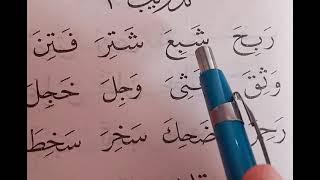 تدريب
رَبِحَ شَبِعَ شَتِرَ فَتِنَ
وَثِقَ وَجِلَ خَجِلَ
ضَحِكَ سَخِرَ سَخِطَ